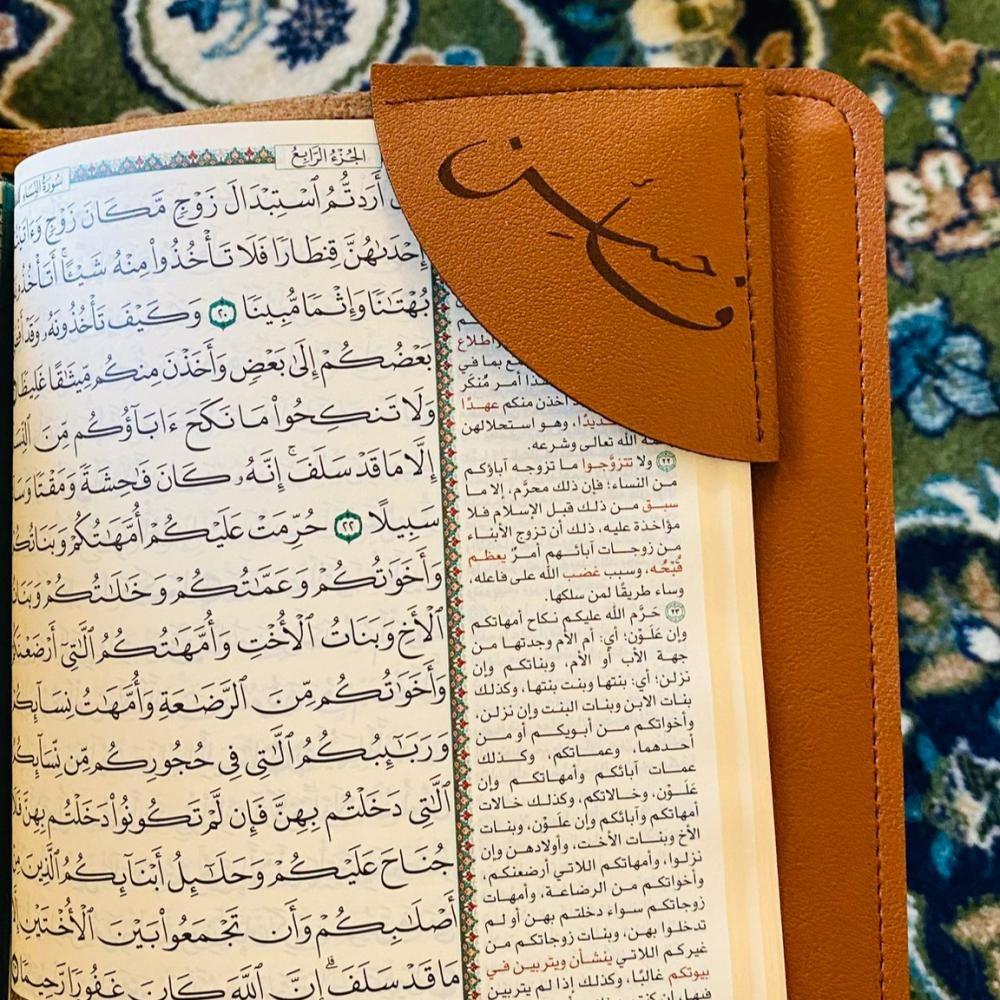 سُورَةُ النِّسَاءِ
الجُزْءُ الرَّابِعُ
أَرَدتُّمُ ٱسْتِبْدَالَ زَوْجٍ مَّكَانَ زَوْجٍ
إِحْدَىٰهُنَّ قِنطَارًا فَلَا تَأْخُذُوا۟ مِنْهُ شَيْـًٔا ۚ
بُهْتَٰنًا وَإِثْمًا مُّبِينًا ٢٠ وَكَيْفَ تَأْخُذُونَهُۥ
بَعْضُكُمْ إِلَىٰ بَعْضٍ وَأَخَذْنَ مِنكُم مِّيثَٰقًا غَلِيظًا
وَلَا تَنكِحُوا۟ مَا نَكَحَ ءَابَآؤُكُم مِّنَ
إِلَّا مَا قَدْ سَلَفَ ۚ إِنَّهُۥ كَانَ فَٰحِشَةً وَمَقْتًا
سَبِيلًا ٢٢ حُرِّمَتْ عَلَيْكُمْ أُمَّهَٰتُكُمْ
وَأَخَوَٰتُكُمْ وَعَمَّٰتُكُمْ وَخَٰلَٰتُكُمْ
ٱلْأَخِ وَبَنَاتُ ٱلْأُخْتِ وَأُمَّهَٰتُكُمُ ٱلَّٰتِىٓ
وَأَخَوَٰتُكُم مِّنَ ٱلرَّضَٰعَةِ وَأُمَّهَٰتُ
وَرَبَٰٓئِبُكُمُ ٱلَّٰتِى فِى حُجُورِكُم مِّن
ٱلَّٰتِى دَخَلْتُم بِهِنَّ فَإِن لَّمْ تَكُونُوا۟ دَخَلْتُم بِهِنَّ
جُنَاحَ عَلَيْكُمْ وَحَلَٰٓئِلُ أَبْنَآئِكُمُ ٱلَّذِينَ
أَصْلَٰبِكُمْ وَأَن تَجْمَعُوا۟ بَيْنَ ٱلْأُخْتَيْنِ
مَا قَدْ سَلَفَ ۗ إِنَّ ٱللَّهَ كَانَ غَفُورًا رَّحِيمًا
بما في
أمر مُنكَر
منكم عهدًا
وهو استحلالهن
الله تعالى وشرعه.
٢٢ ولا تتزوَّجوا ما تزوجه آباؤكم
من النساء؛ فإن ذلك محرَّم، إلا ما
سبق من ذلك قبل الإسلام فلا
مؤاخذة عليه، ذلك أن تزوج الأبناء
من زوجات آبائهم أمرٌ يعظم
قُبْحُه، وسبب غضب الله على فاعله،
وساء طريقًا لمن سلكها.
٢٣ حَرَّم الله عليكم نكاح أمهاتكم
وإن عَلَوْن؛ أي: أم الأم وجدتها من
جهة الأب أو الأم، وبناتكم وإن
نزلن؛ أي: بنتها وبنت بنتها، وكذلك
بنات الابن وبنات البنت وإن نزلن،
وأخواتكم من أبويكم أو من
أحدهما، وعماتكم، وكذلك
عمات آبائكم وأمهاتكم وإن
عَلَوْن، وخالاتكم، وكذلك خالات
أمهاتكم وآبائكم وإن علَوْن، وبنات
الأخ وبنات الأخت، وأولادهن وإن
نزلوا، وأمهاتكم اللاتي أرضعنكم،
وأخواتكم من الرضاعة، وأمهات
زوجاتكم سواء دخلتم بهن أو لم
تدخلوا بهن، وبنات زوجاتكم من
غيركم اللاتي ينشأن ويتربين في
بيوتكم غالبًا، وكذلك إذا لم يتربين